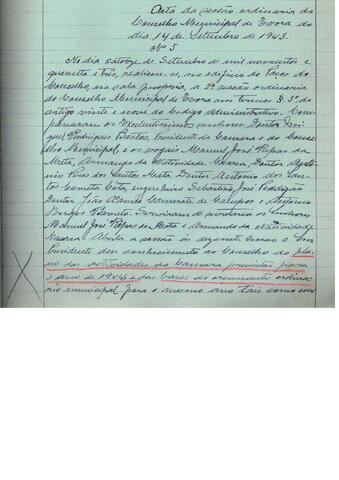 Acta da sessão ordinaria do
Conselho Municipal de Evora do
dia 14 de Setembro de 1943.
Nº 5
No dia catorze de Setembro de mil novecentos e
quarenta e três, realisou-se, no edificio do Paços do
Concelho, na sala propria, a 2ª sessão ordinaria
do Conselho Municipal de Evora nos termos § 3º do
artigo vinte e nove do Codigo Administractivo. Com-
pareceram os Excelentissimos senhores Doutor Mi-
guel Rodrigues Bastos, Presidente da Camara e do Conse-
lho Municipal, e os vogais Manuel José
Mata, Armando da Natividade Doutor
Pires dos Santos Mata, Doutor Antonio dos San-
tos engenheiro Sebastião José Perdigão
Doutor João de Campos e Antonio
Borges Barreto. Serviram de secretarios os senhores
Manuel José da Mata e Armando da Natividade
Aberta a sessão ás dezassete horas o Sen
Presidente deu conhecimento ao Conselho do pla-
no das actividades da Camara previstas para
o ano de 1944 e das bases do orçamento ordina-
rio municipal para o mesmo ano tais como